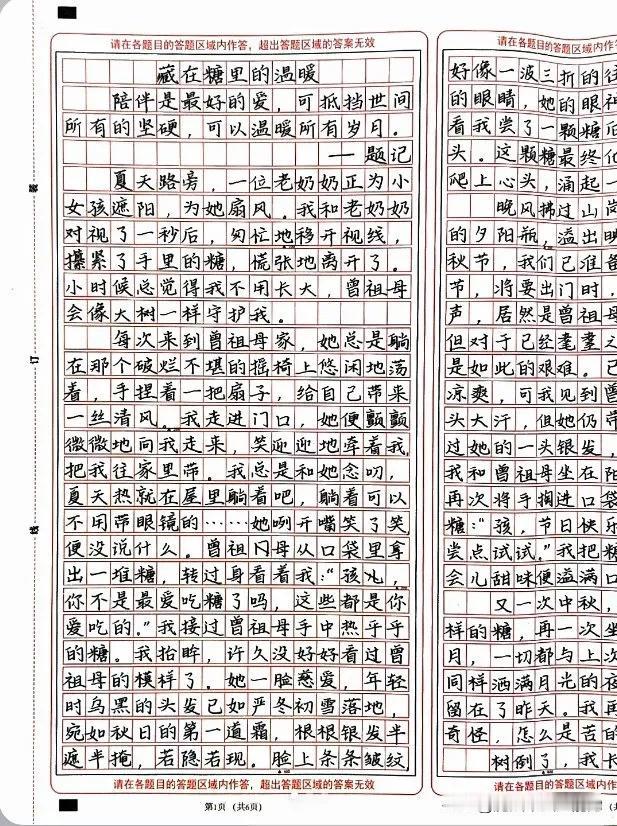 请在各题目的答题区域内作答，超出答题区域的答案无效
藏在糖里的温暖
陪伴是最好的爱，可抵挡世间
所有的坚硬，可以温暖所有岁月。
——题记
夏天路旁，一位老奶奶正为小
女孩遮阳，为她扇风。我和老奶奶
对视了一秒后，匆忙地移开视线，
攥紧了手里的糖，慌张地离开了。
小时候总觉得我不用长大，曾祖母
会像大树一样守护我。
每次来到曾祖母家，她总是躺
在那个破烂不堪的摇椅上悠闲地荡
着，手捏着一把扇子，给自己带来
一丝清风。我走进门口，她便颤颤
微微地向我走来，笑迎迎地牵着我，
把我往家里带。我总是和她念叨，
夏天热就在屋里躺着吧，躺着可以
不用带眼镜的……她咧开嘴笑了笑，
便没说什么。曾祖母从口袋里拿
出一堆糖，转过身看着我：“孩儿，
你不是最爱吃糖了吗，这些都是你
爱吃的。”我接过曾祖母手中热乎乎
的糖。我抬眸，许久没好好看过曾
祖母的模样了。她一脸慈爱，年轻
时乌黑的头发已如严冬初雪落地，
宛如秋日的第一道霜，根根银发半
遮半掩，若隐若现。脸上条条皱纹，
请在各题目的答题区域内作答，超出答题区域的答案无效
第1页（共6页）
装
订
线
请在各题目的答题区域内作答，超出
好像一波三折的往
的眼睛，她的眼神
看我尝了一颗糖后
头。这颗糖最终化
爬上心头，涌起一
晚风拂过山岗
的夕阳瓶，溢出
秋节，我们已准备
节，将要出门时，
声，居然是曾祖母
但对于已经耄耋之
是如此的艰难。已
凉爽，可我见到曾
头大汗，但她仍带
过她的一头银发，
我和曾祖母坐在阳
再次将手掏进口袋
糖：“孩，节日快乐
尝点试试。”我把糖
会儿甜味便溢满口
又一次中秋，
样的糖，再一次坐
月，一切都与上次
同样洒满月光的夜
留在了昨天。我再
奇怪，怎么是苦的
树倒了，我卡
请在各题目的答题区域内作答，超出